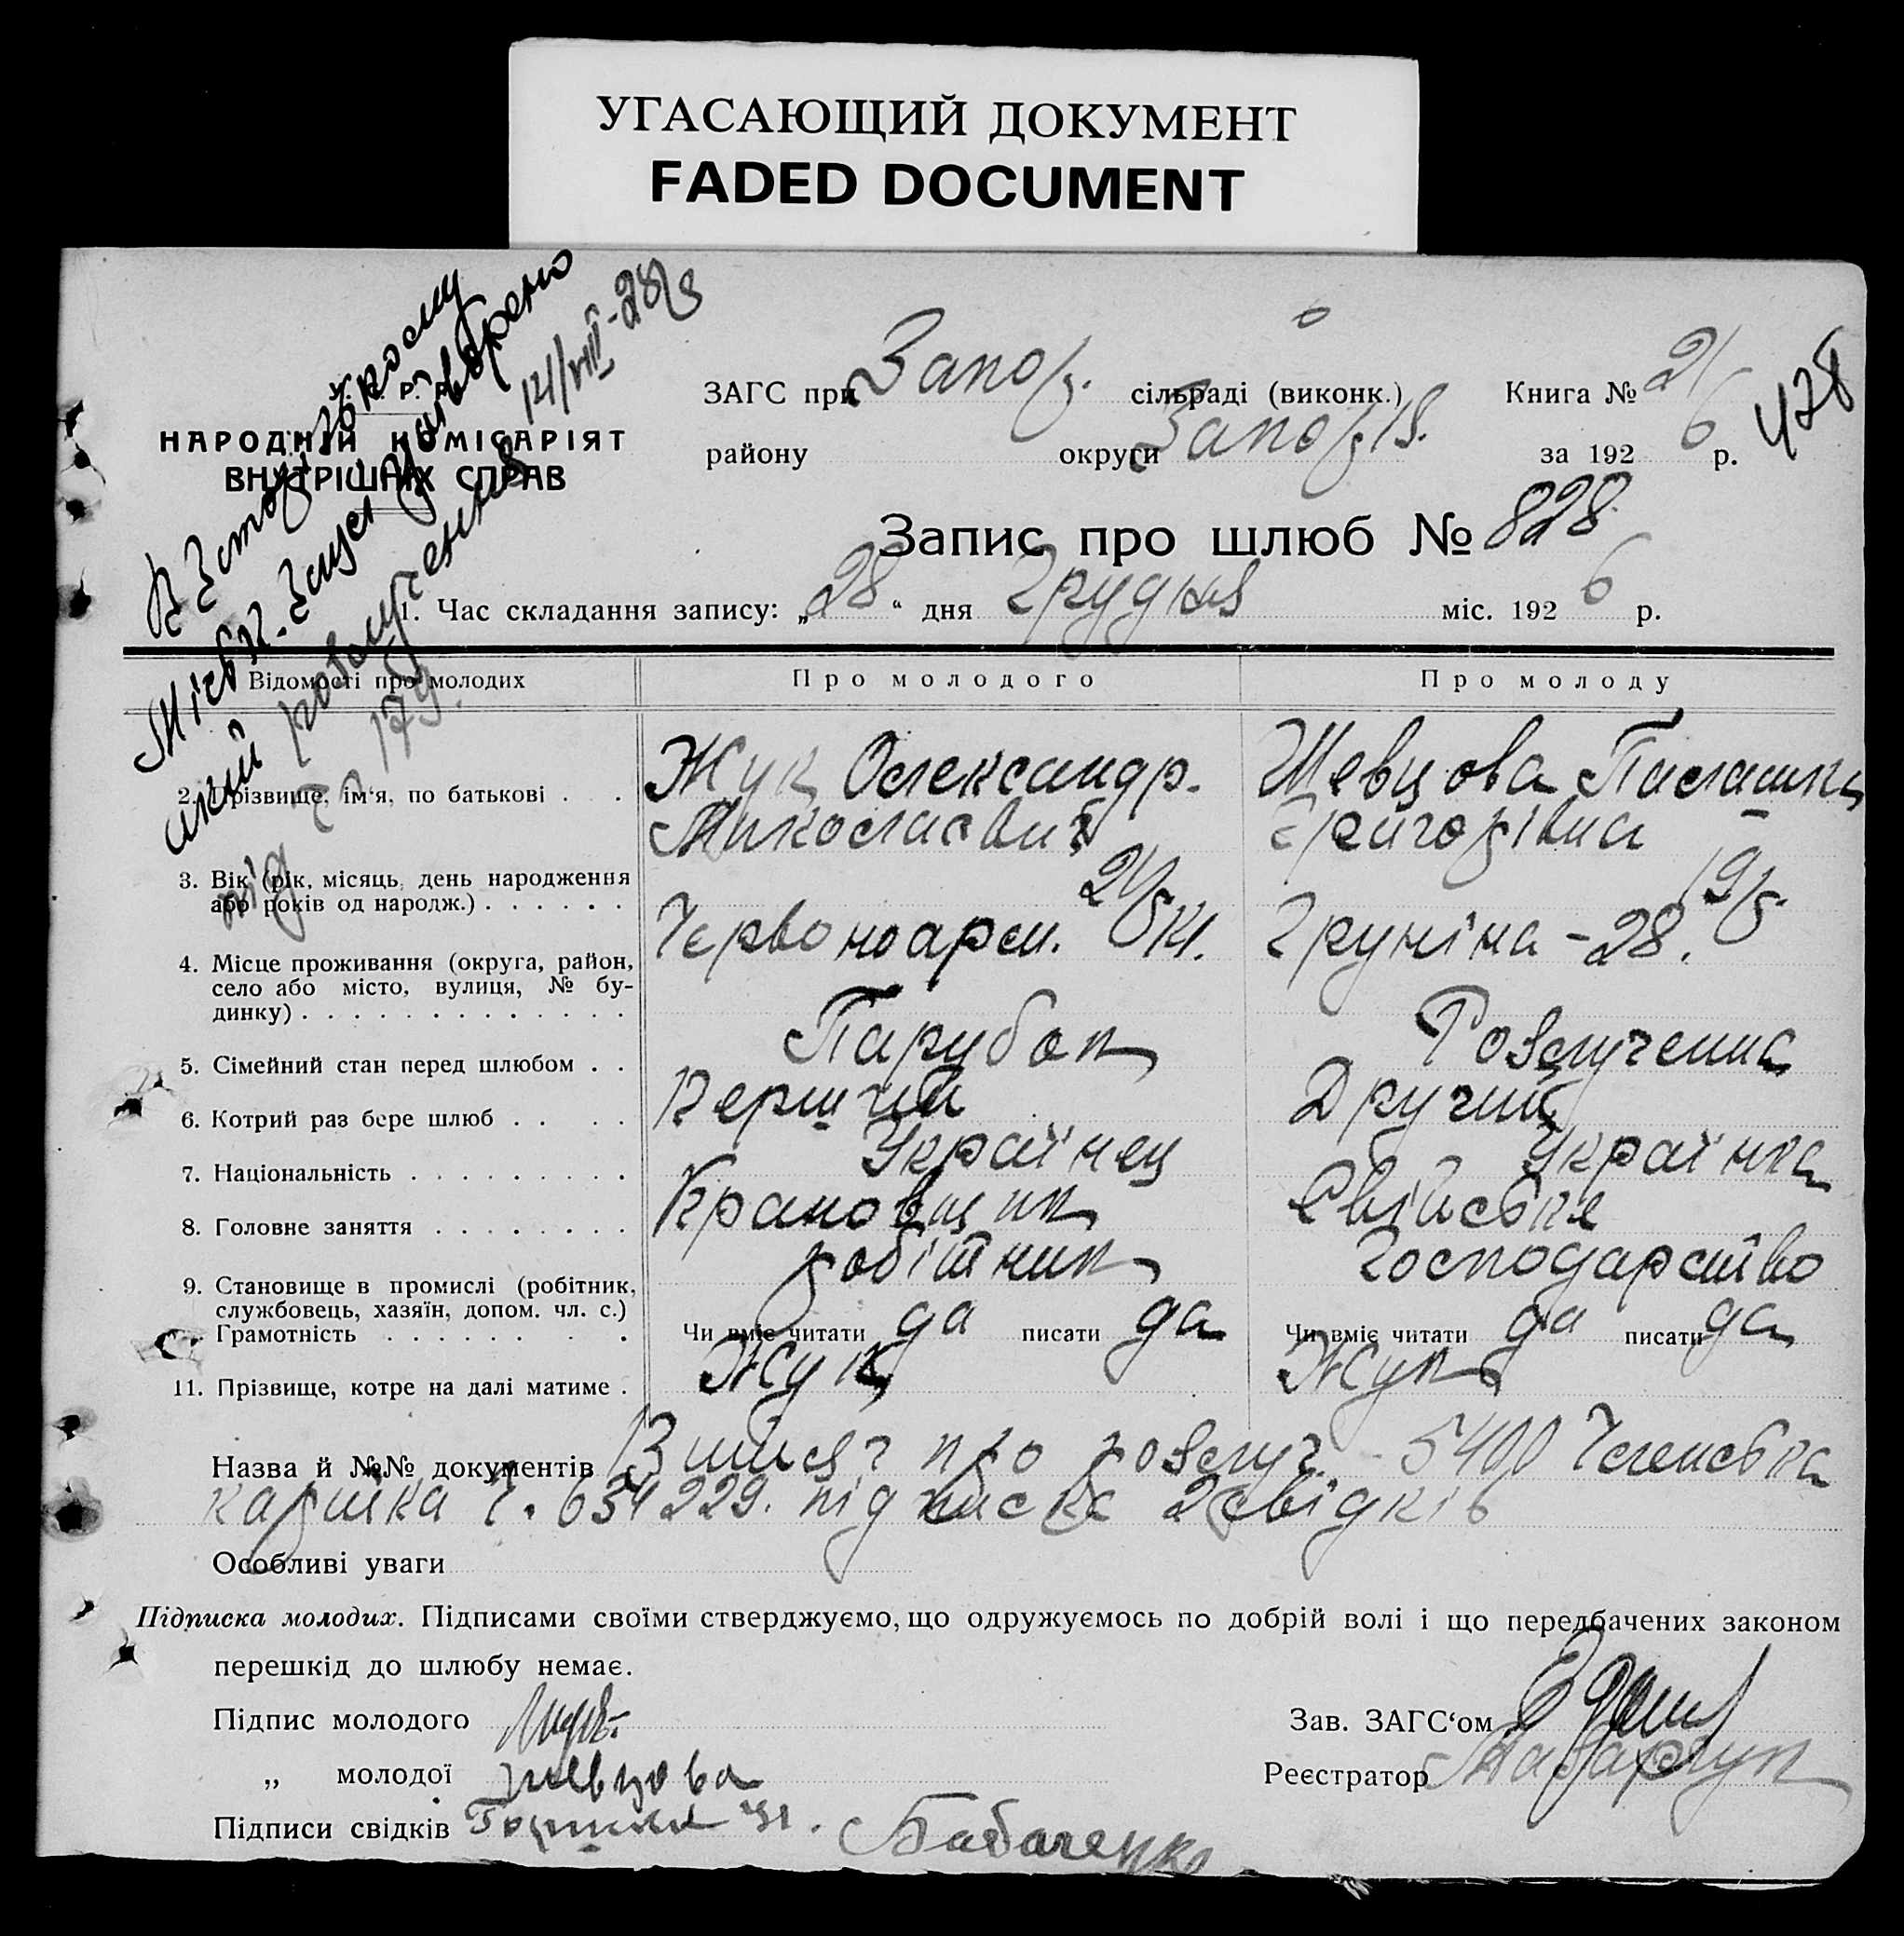 УГАСАЮЩИЙ ДОКУМЕНТ
FADED DOCUMENT
НАРОДНІЙ КОМІСАРІЯТ
ВНУТРІШНІХ СПРАВ
14/VIII-28
ЗАГС при Запор. сільраді (виконк.) Книга № 2
району округи Запоріз. за 1926 р.
428
Запис про шлюб № 828
1. Час складання запису: „28“ дня Грудня міс. 1926 р.
Відомості про молодих Про молодого Про молоду
2. Прізвище, ім‘я, по батькові . . . Жук Олександр. Шевцова Палашка
Миколаєвич Григорівна
3. Вік (рік, місяць, день народження
або років од народж.) . . . . . . 21 19
4. Місце проживання (округа, район,
село або місто, вулиця, № бу-
динку) . . . . . . . . . . . . . Червоноарм. Груніна - 28.
5. Сімейний стан перед шлюбом . . Парубок Розлучена
6. Котрий раз бере шлюб . . . . Перший Другий
7. Національність . . . . . . . . . Українец Українка
8. Головне заняття . . . . . . . . Крановщик Свійське
9. Становище в промислі (робітник,
службовець, хазяїн, допом. чл. с.) робітник господарство
Грамотність . . . . . . . . Чи вміє читати да писати да Чи вміє читати да писати да
11. Прізвище, котре на далі матиме . Жук Жук
Назва й №№ документів Витяг про розлуч. - 5400 Членська
картка Ч. 634229. підписка 2 свідків
Особливі уваги
Підписка молодих. Підписами своїми стверджуємо, що одружуємось по добрій волі і що передбачених законом
перешкід до шлюбу немає.
Підпис молодого
Зав. ЗАГС‘ом
„ молодої Шевцова
Реєстратор
Підписи свідків Бабаченко